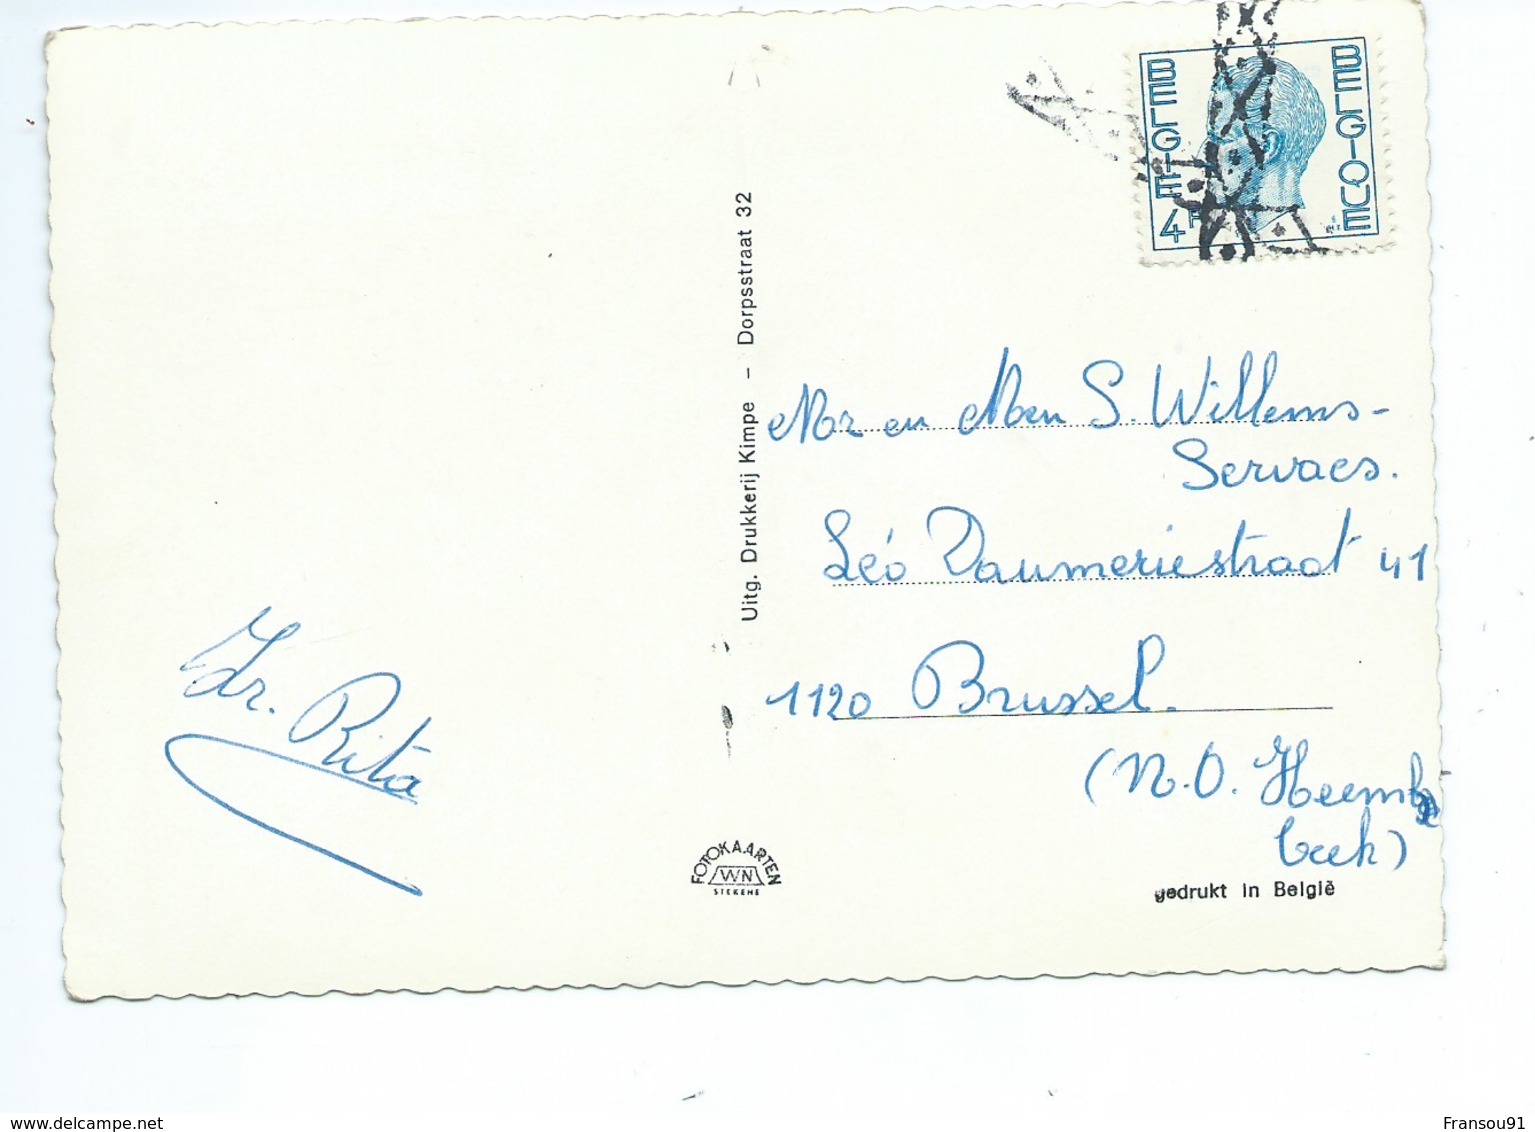 BELGIE BELGIQUE
4F
Uitg. Drukkerij Kimpe – Dorpsstraat 32
Mr en Men S. Willems-
Servaes.
Léo Daumeriestraat 41
1120 Brussel.
(N.O. Heemb
beek)
Zr. Rita
FOTOKAARTEN
WN
STEKENE
gedrukt in België
www.delcampe.net
Fransou91